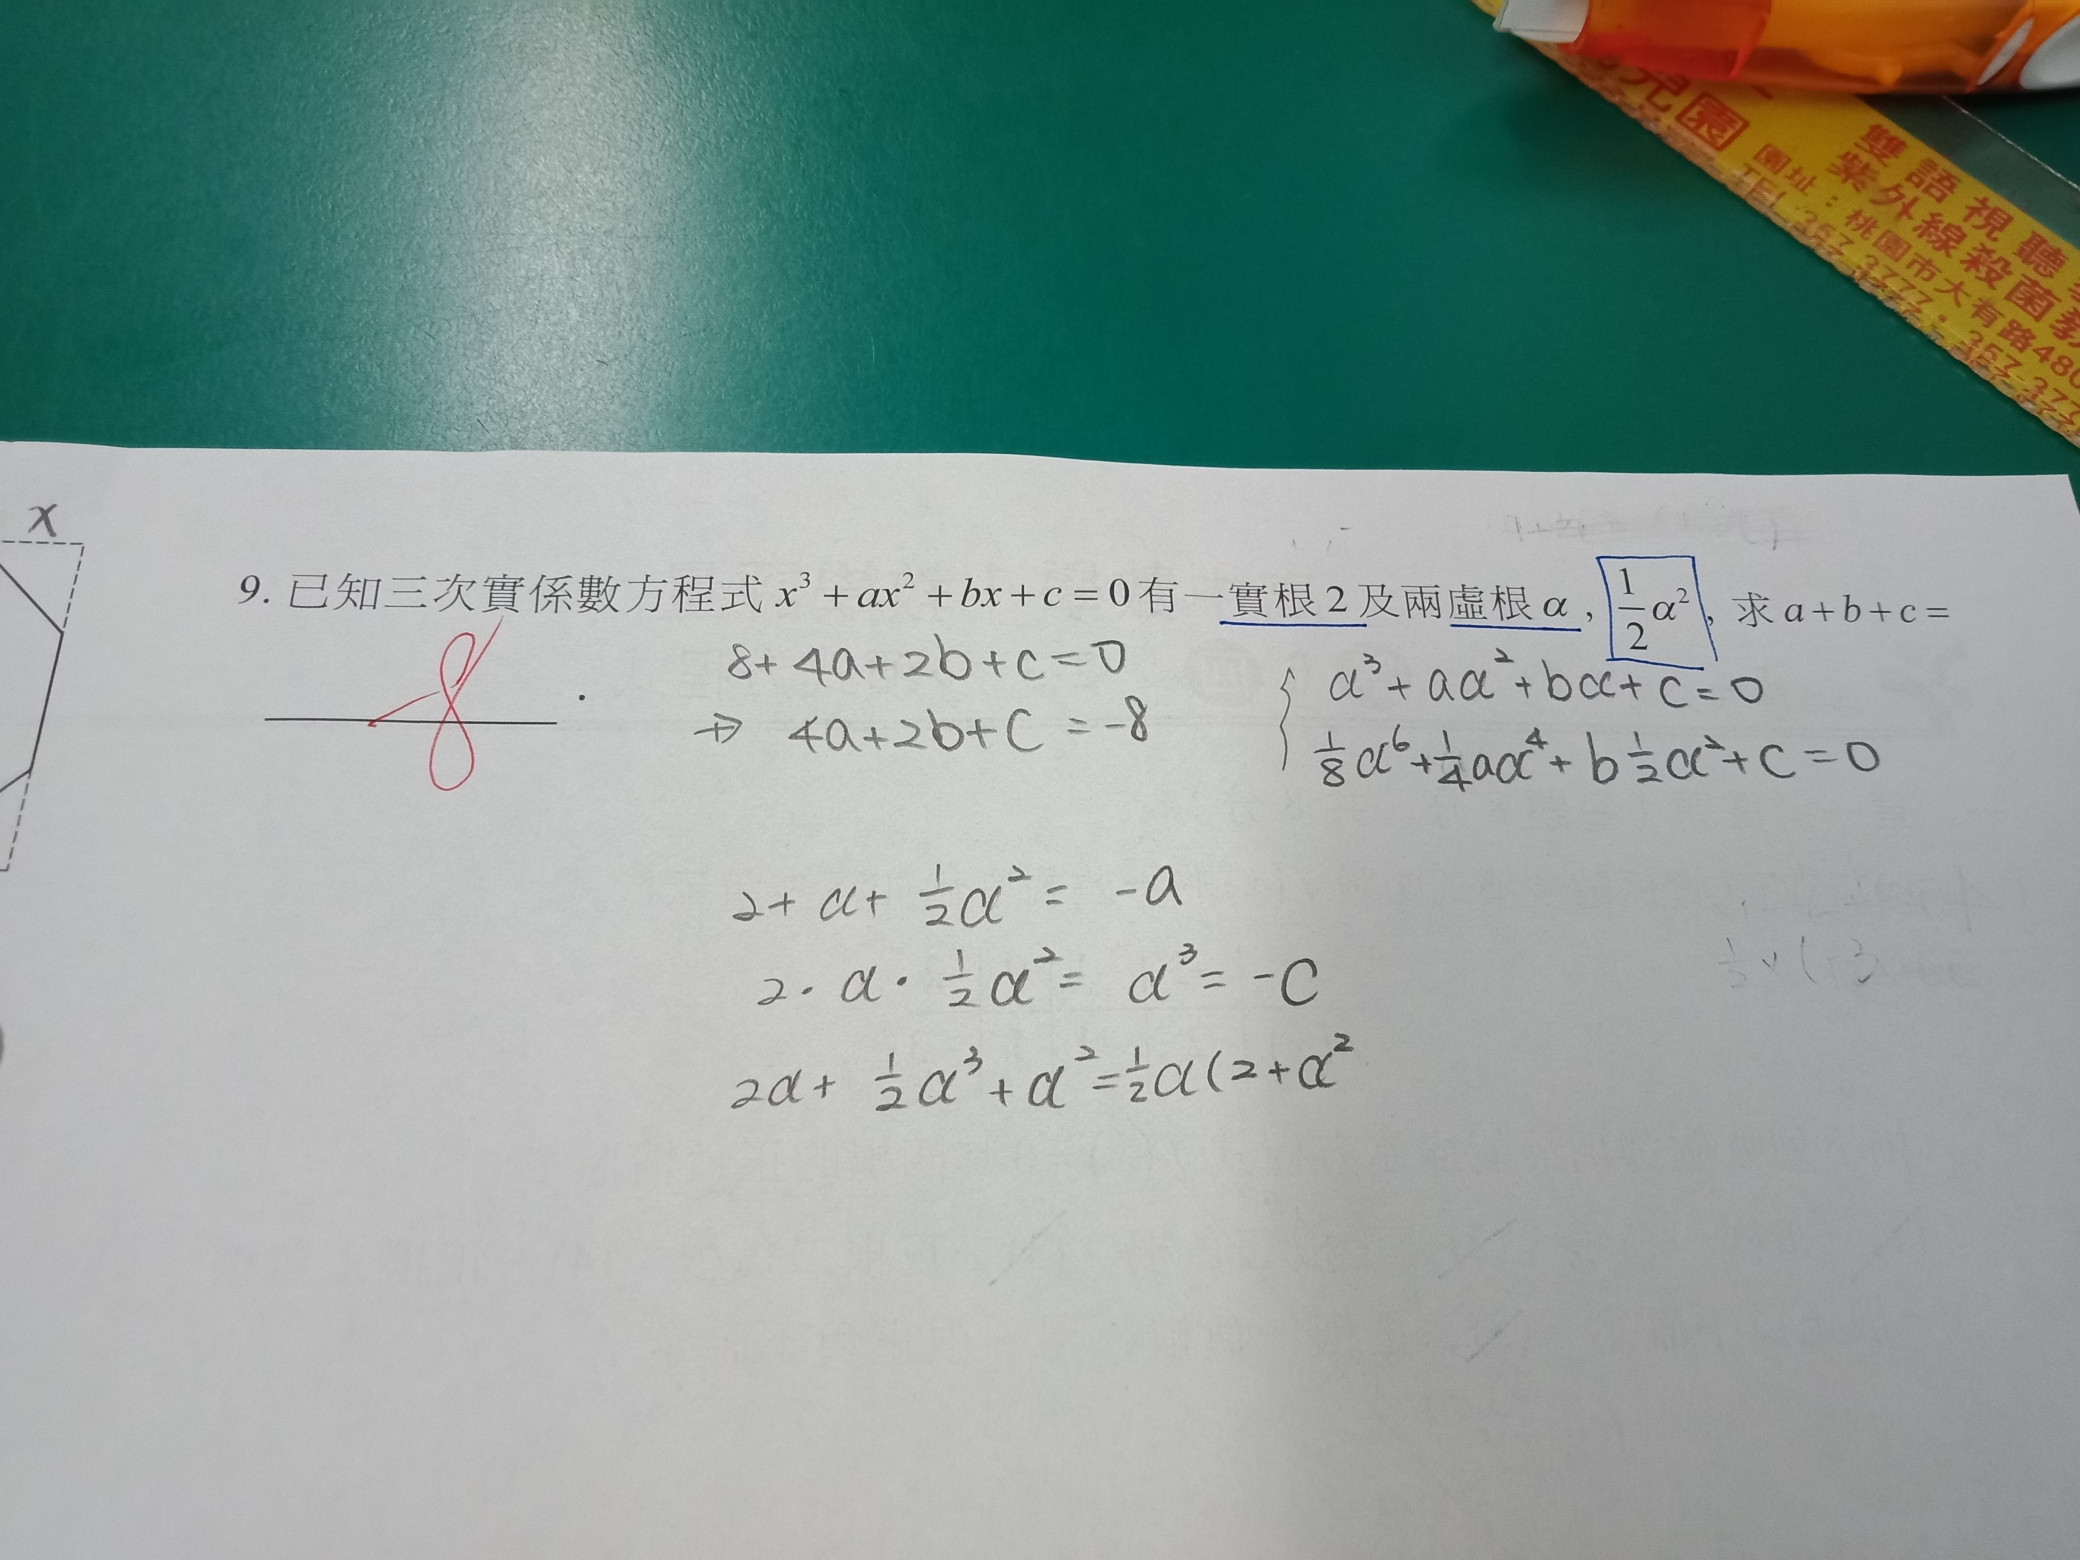 兒園
雙語視聽
紫外線殺菌
園址:桃園市大有路480
TEL:357-3777・357-377
x
9. 已知三次實係數方程式 x³ + ax² + bx + c = 0 有一實根 2 及兩虛根 α , 1/2 α² , 求 a + b + c =
8 .
8 + 4a + 2b + c = 0
⇒ 4a + 2b + c = -8
α³ + aα² + bα + c = 0
1/8 α⁶ + 1/4 aα⁴ + b 1/2 α² + c = 0
2 + α + 1/2 α² = -a
2 · α · 1/2 α² = α³ = -c
2α + 1/2 α³ + α² = 1/2 α(2 + α²